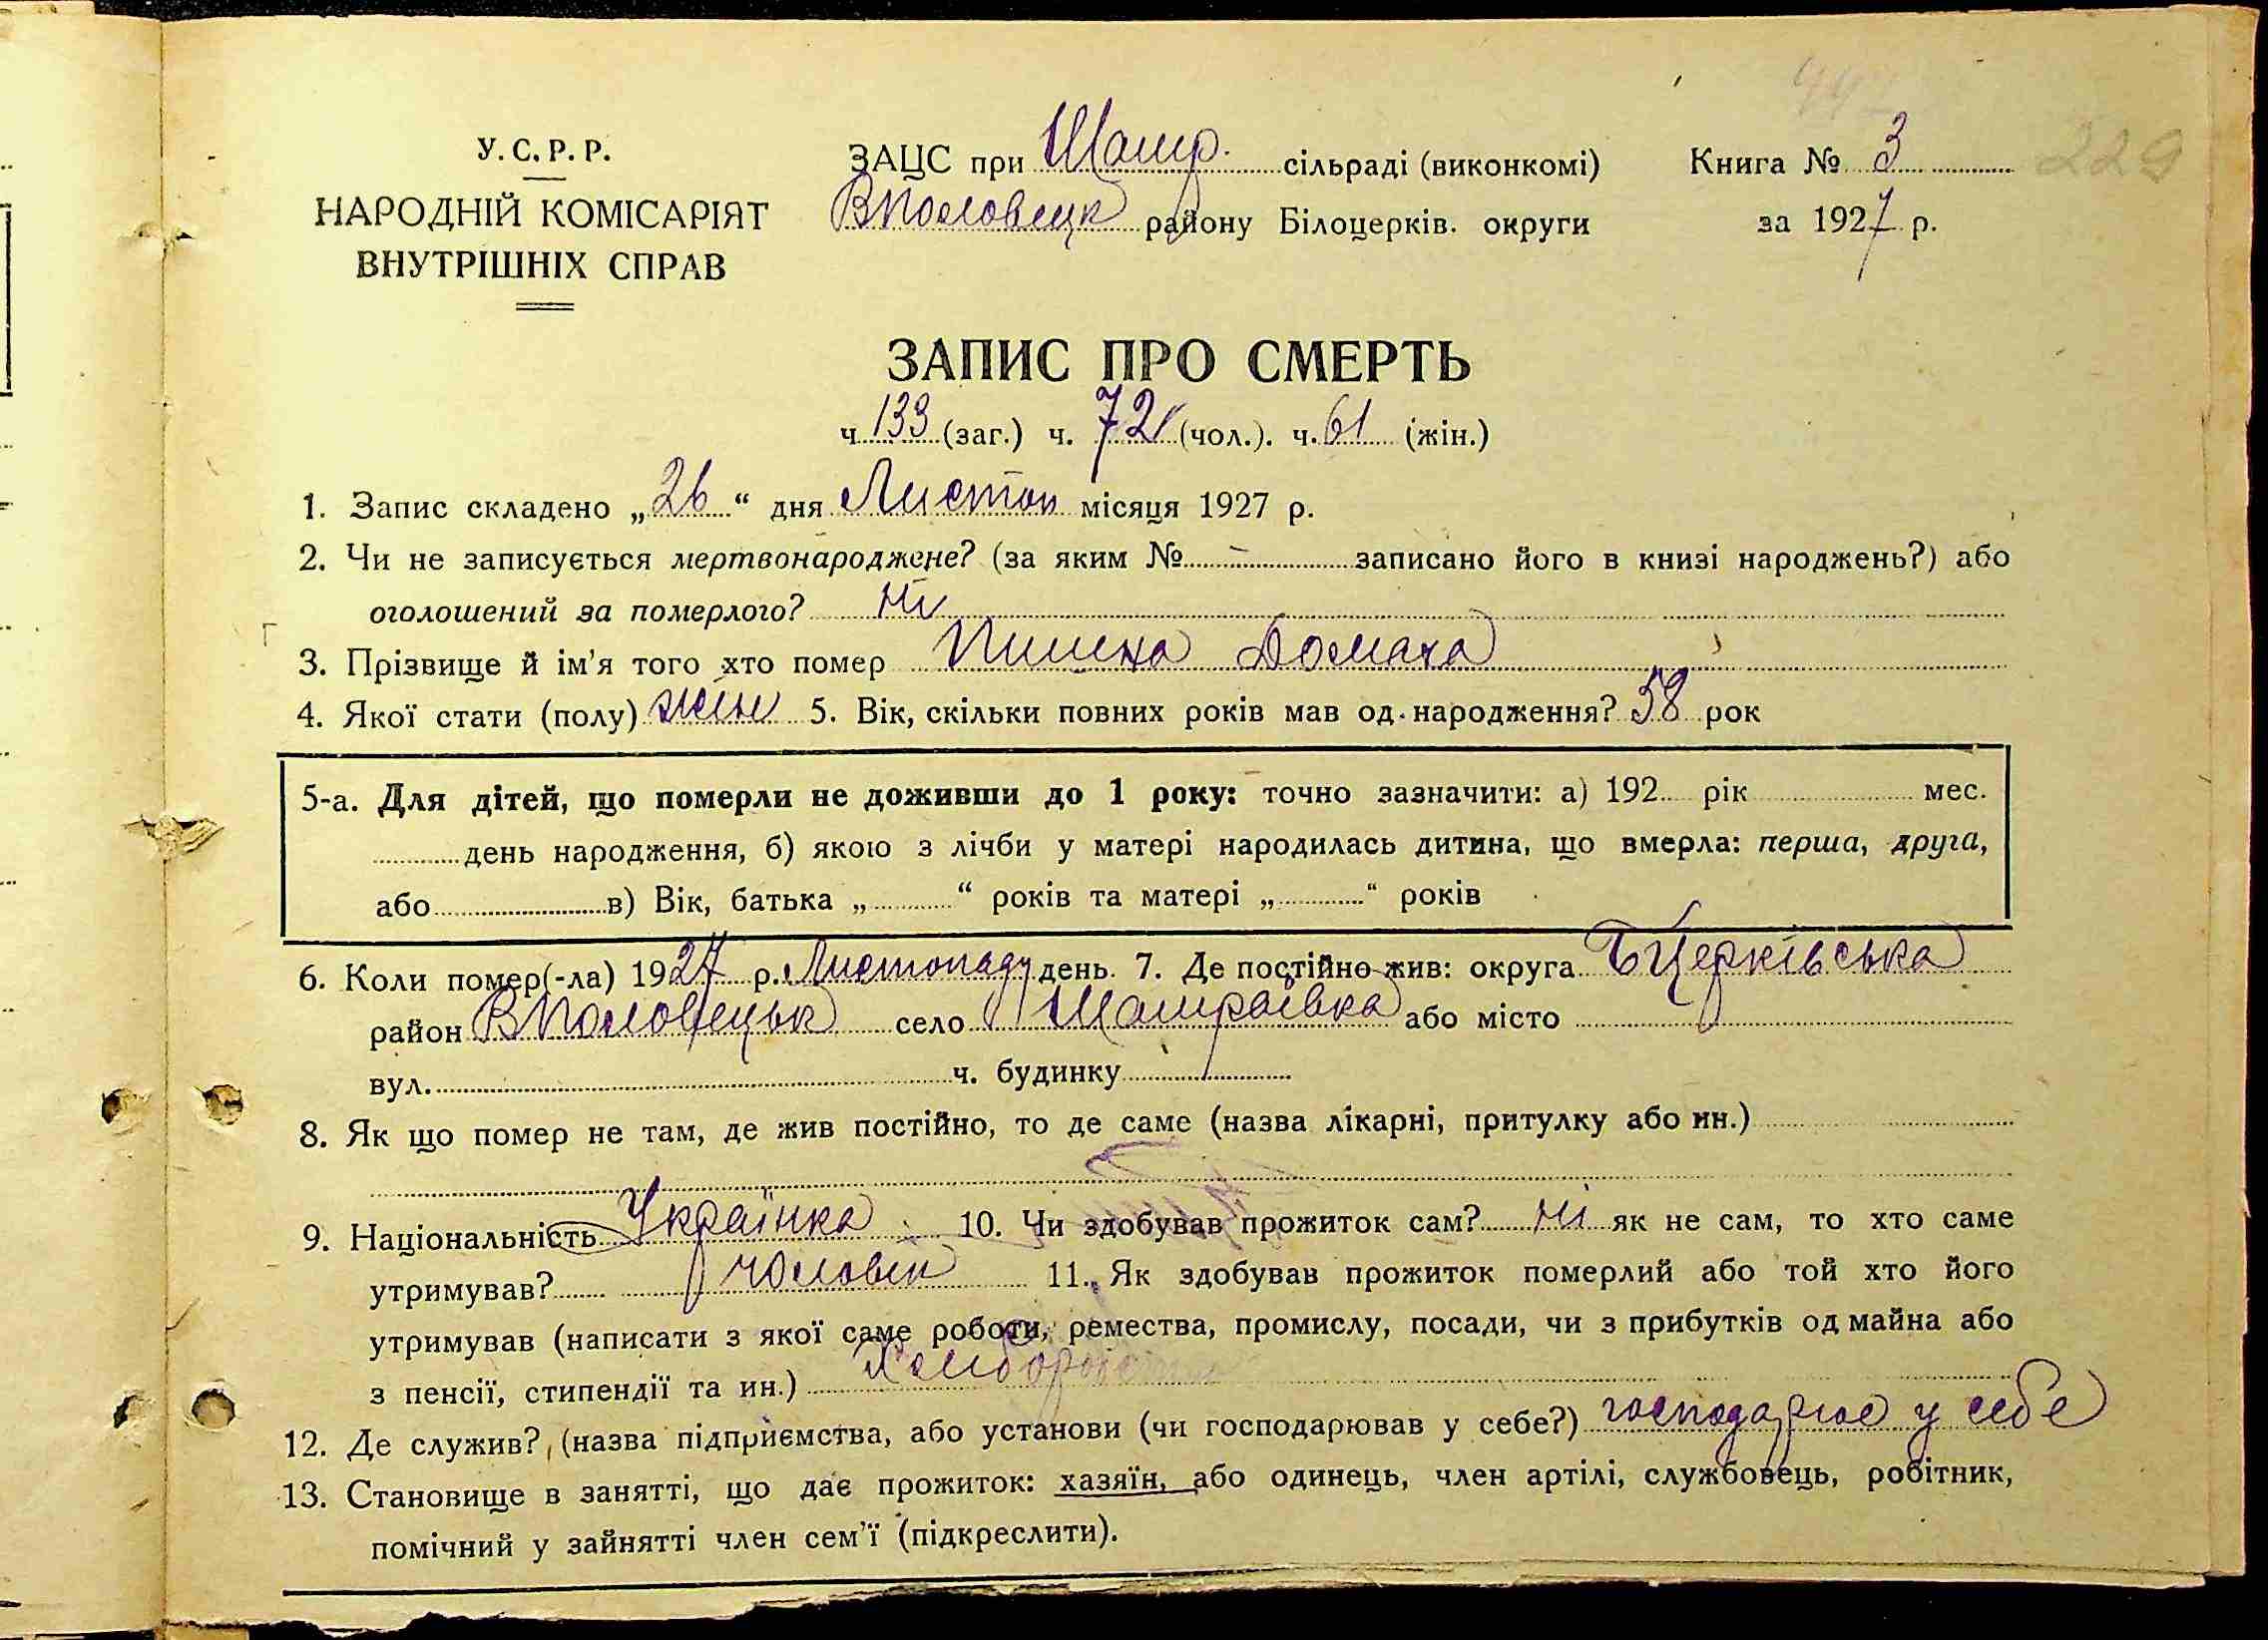 У.С.Р.Р.
НАРОДНІЙ КОМІСАРІЯТ
ВНУТРІШНІХ СПРАВ
ЗАЦС при Шамр. сільраді (виконкомі)
ВПоловецк району Білоцерків. округи
Книга № 3
229
за 1927 р.
ЗАПИС ПРО СМЕРТЬ
ч 133 (заг.) ч. 72 (чол.). ч. 61 (жін.)
1. Запис складено „26“ дня Листоп місяця 1927 р.
2. Чи не записується мертвонароджене? (за яким № – записано його в книзі народжень?) або
оголошений за померлого? ні
3. Прізвище й ім’я того хто помер Домаха
4. Якої стати (полу) жін 5. Вік, скільки повних років мав од народження? 58 рок
5-а. Для дітей, що померли не доживши до 1 року: точно зазначити: а) 192 рік мес.
день народження, б) якою з лічби у матері народилась дитина, що вмерла: перша, друга,
або в) Вік, батька „ “ років та матері „ “ років
6. Коли помер(-ла) 1927 р. Листопаду день. 7. Де постійно жив: округа БЦерківська
район ВПоловецьк село Шамраївка або місто
вул. ч. будинку
8. Як що помер не там, де жив постійно, то де саме (назва лікарні, притулку або ин.)
9. Національність Українка 10. Чи здобував прожиток сам? ні як не сам, то хто саме
утримував? чоловік 11. Як здобував прожиток померлий або той хто його
утримував (написати з якої саме роботи, ремества, промислу, посади, чи з прибутків од майна або
з пенсії, стипендії та ин.)
12. Де служив? (назва підприємства, або установи (чи господарював у себе?) господарює у себе
13. Становище в занятті, що дає прожиток: хазяїн, або одинець, член артілі, службовець, робітник,
помічний у зайнятті член сем’ї (підкреслити).